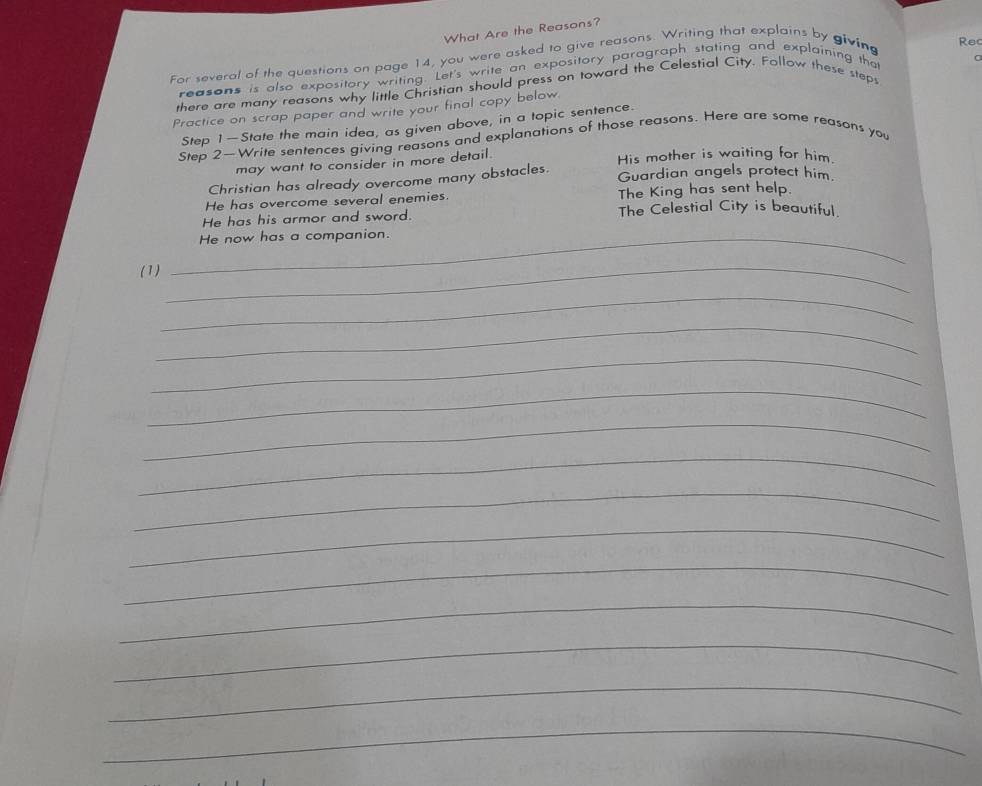 What Are the Reasons?
For several of the questions on page 14, you were asked to give reasons. Writing that explains by giving
reasons is also expository writing. Let's write an expository paragraph stating and explaining that
there are many reasons why little Christian should press on toward the Celestial City. Follow these steps.
Practice on scrap paper and write your final copy below.
Step 1—State the main idea, as given above, in a topic sentence.
Step 2—Write sentences giving reasons and explanations of those reasons. Here are some reasons you
may want to consider in more detail.
Christian has already overcome many obstacles.
He has overcome several enemies.
He has his armor and sword.
He now has a companion.
His mother is waiting for him.
Guardian angels protect him.
The King has sent help.
The Celestial City is beautiful.
(1)